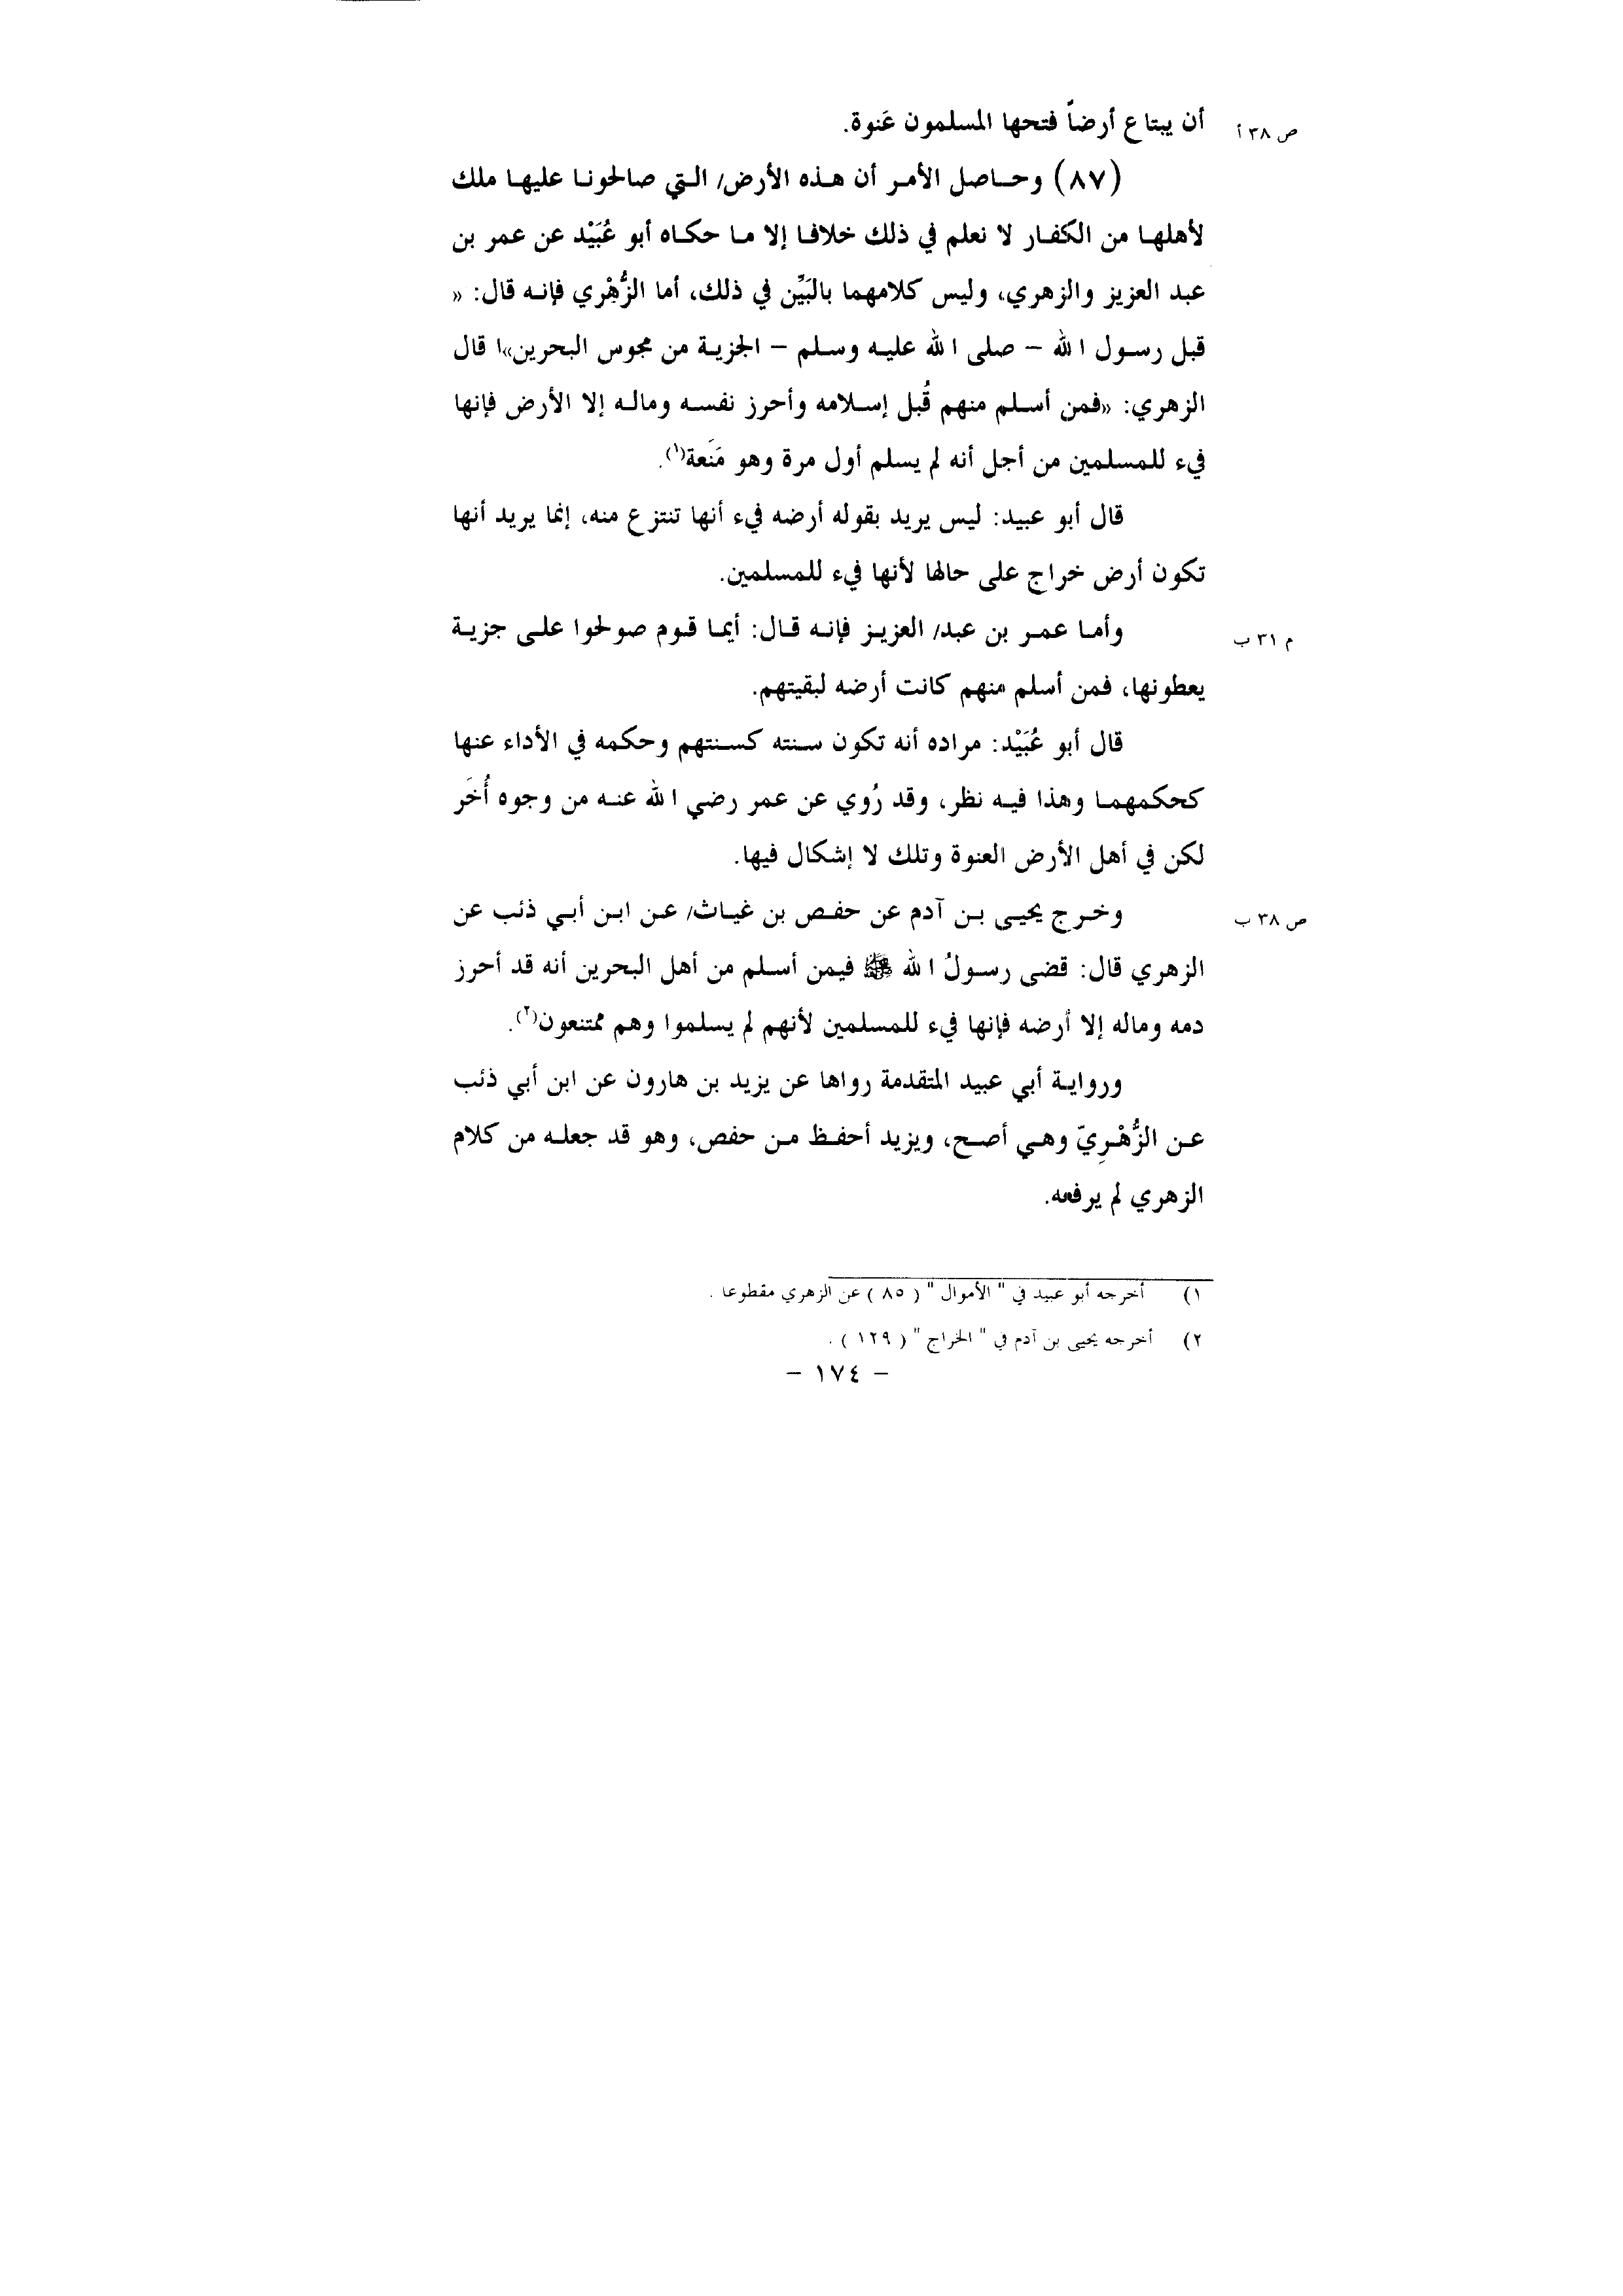 ص ٣٨ أ أن يبتاع أرضاً فتحها المسلمون عَنوة.
(٨٧) وحاصل الأمر أن هذه الأرض/ التي صالحونا عليها ملك
لأهلها من الكفار لا نعلم في ذلك خلافا إلا ما حكاه أبو عُبَيْد عن عمر بن
عبد العزيز والزهري، وليس كلامهما بالبَيِّن في ذلك، أما الزُّهْرِي فإنه قال: «
قبل رسول الله – صلى الله عليه وسلم – الجزية من مجوس البحرين»ا قال
الزهري: «فمن أسلم منهم قُبل إسلامه وأحرز نفسه وماله إلا الأرض فإنها
فيء للمسلمين من أجل أنه لم يسلم أول مرة وهو مَنَعة(١).
قال أبو عبيد: ليس يريد بقوله أرضه فيء أنها تنتزع منه، إنما يريد أنها
تكون أرض خراج على حالها لأنها فيء للمسلمين.
م ٣١ ب وأما عمر بن عبد/ العزيز فإنه قال: أيما قوم صولحوا على جزية
يعطونها، فمن أسلم منهم كانت أرضه لبقيتهم.
قال أبو عُبَيْد: مراده أنه تكون سنته كسنتهم وحكمه في الأداء عنها
كحكمهما وهذا فيه نظر، وقد رُوي عن عمر رضي الله عنه من وجوه أُخَر
لكن في أهل الأرض العنوة وتلك لا إشكال فيها.
ص ٣٨ ب وخرج يحيى بن آدم عن حفص بن غياث/ عن ابن أبي ذئب عن
الزهري قال: قضى رسولُ الله ﷺ فيمن أسلم من أهل البحرين أنه قد أحرز
دمه وماله إلا أرضه فإنها فيء للمسلمين لأنهم لم يسلموا وهم ممتنعون(٢).
ورواية أبي عبيد المتقدمة رواها عن يزيد بن هارون عن ابن أبي ذئب
عن الزُّهْرِيّ وهي أصح، ويزيد أحفظ من حفص، وهو قد جعله من كلام
الزهري لم يرفعه.
١) أخرجه أبو عبيد في " الأموال " ( ٨٥ ) عن الزهري مقطوعا .
٢) أخرجه يحيى بن آدم في " الخراج " ( ١٢٩ ) .
– ١٧٤ –